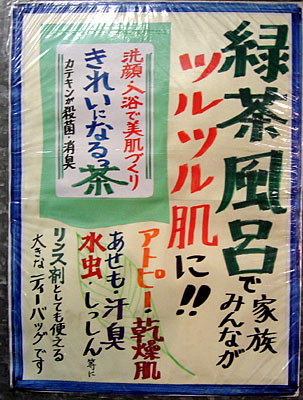 緑茶風呂で家族
みんなが
ツルツル肌に!!
洗顔・入浴で美肌づくり
きれいになるっ茶
カテキンが殺菌・消臭
アトピー・乾燥肌
あせも・汗臭
水虫・しっしん等に
リンス剤としても使える
大きなティーバッグです